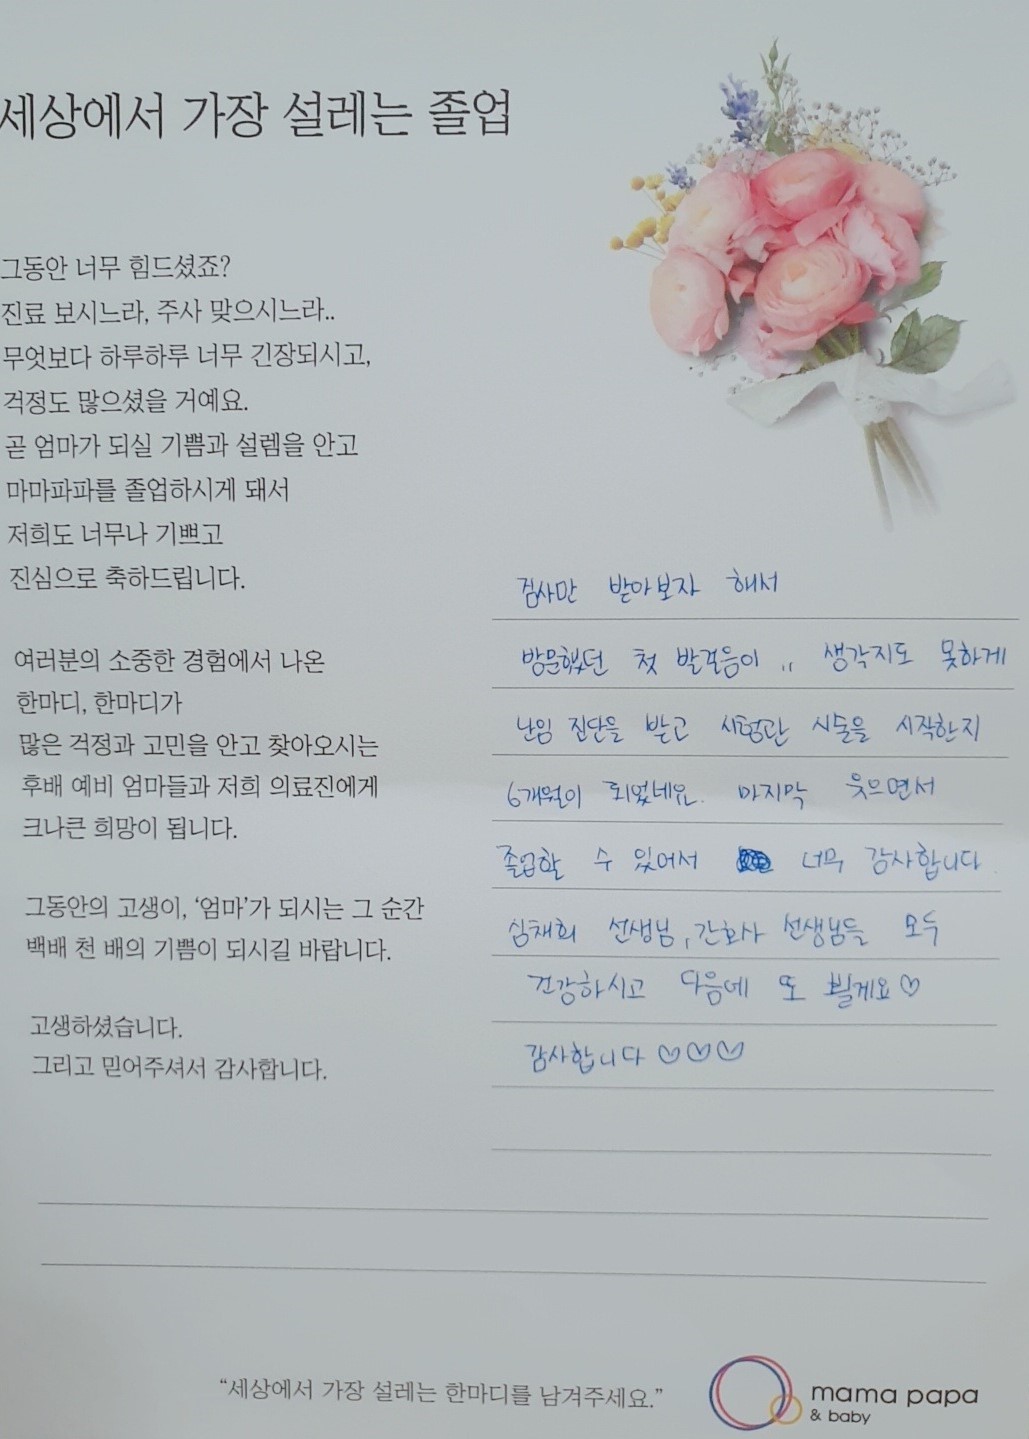 세상에서 가장 설레는 졸업
그동안 너무 힘드셨죠?
진료 보시느라, 주사 맞으시느라..
무엇보다 하루하루 너무 긴장되시고,
걱정도 많으셨을 거예요.
곧 엄마가 되실 기쁨과 설렘을 안고
마마파파를 졸업하시게 돼서
저희도 너무나 기쁘고
진심으로 축하드립니다.
여러분의 소중한 경험에서 나온
한마디, 한마디가
많은 걱정과 고민을 안고 찾아오시는
후배 예비 엄마들과 저희 의료진에게
크나큰 희망이 됩니다.
그동안의 고생이, ‘엄마’가 되시는 그 순간
백배 천 배의 기쁨이 되시길 바랍니다.
고생하셨습니다.
그리고 믿어주셔서 감사합니다.
검사만 받아보자 해서
방문했던 첫 발걸음이 .. 생각지도 못하게
난임 진단을 받고 시험관 시술을 시작한지
6개월이 되었네요. 마지막 웃으면서
졸업할 수 있어서 너무 감사합니다.
심채희 선생님, 간호사 선생님들 모두
건강하시고 다음에 또 뵐게요♡
감사합니다♡♡♡
“세상에서 가장 설레는 한마디를 남겨주세요.”
mama papa
& baby